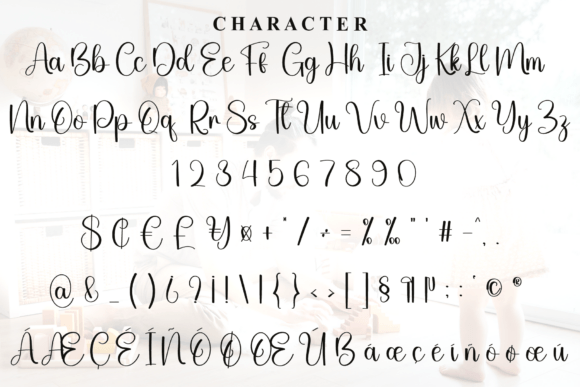 CHARACTER
Aa Bb Cc Dd Ee Ff Gg Hh Ii Jj Kk Ll Mm
Nn Oo Pp Qq Rr Ss Tt Uu Vv Ww Xx Yy Zz
1 2 3 4 5 6 7 8 9 0
$ ₵ € £ ¥ ¤ + * / ÷ = % ‰ " ' # – ^ , .
@ & _ ( ) ¿ ? ¡ ! \ | { } < > [ ] § ¶ ; : ' © ®
Á Æ Ç É Í Ñ Ó Ø Œ Ú ß á æ ç é í ñ ó ø œ ú